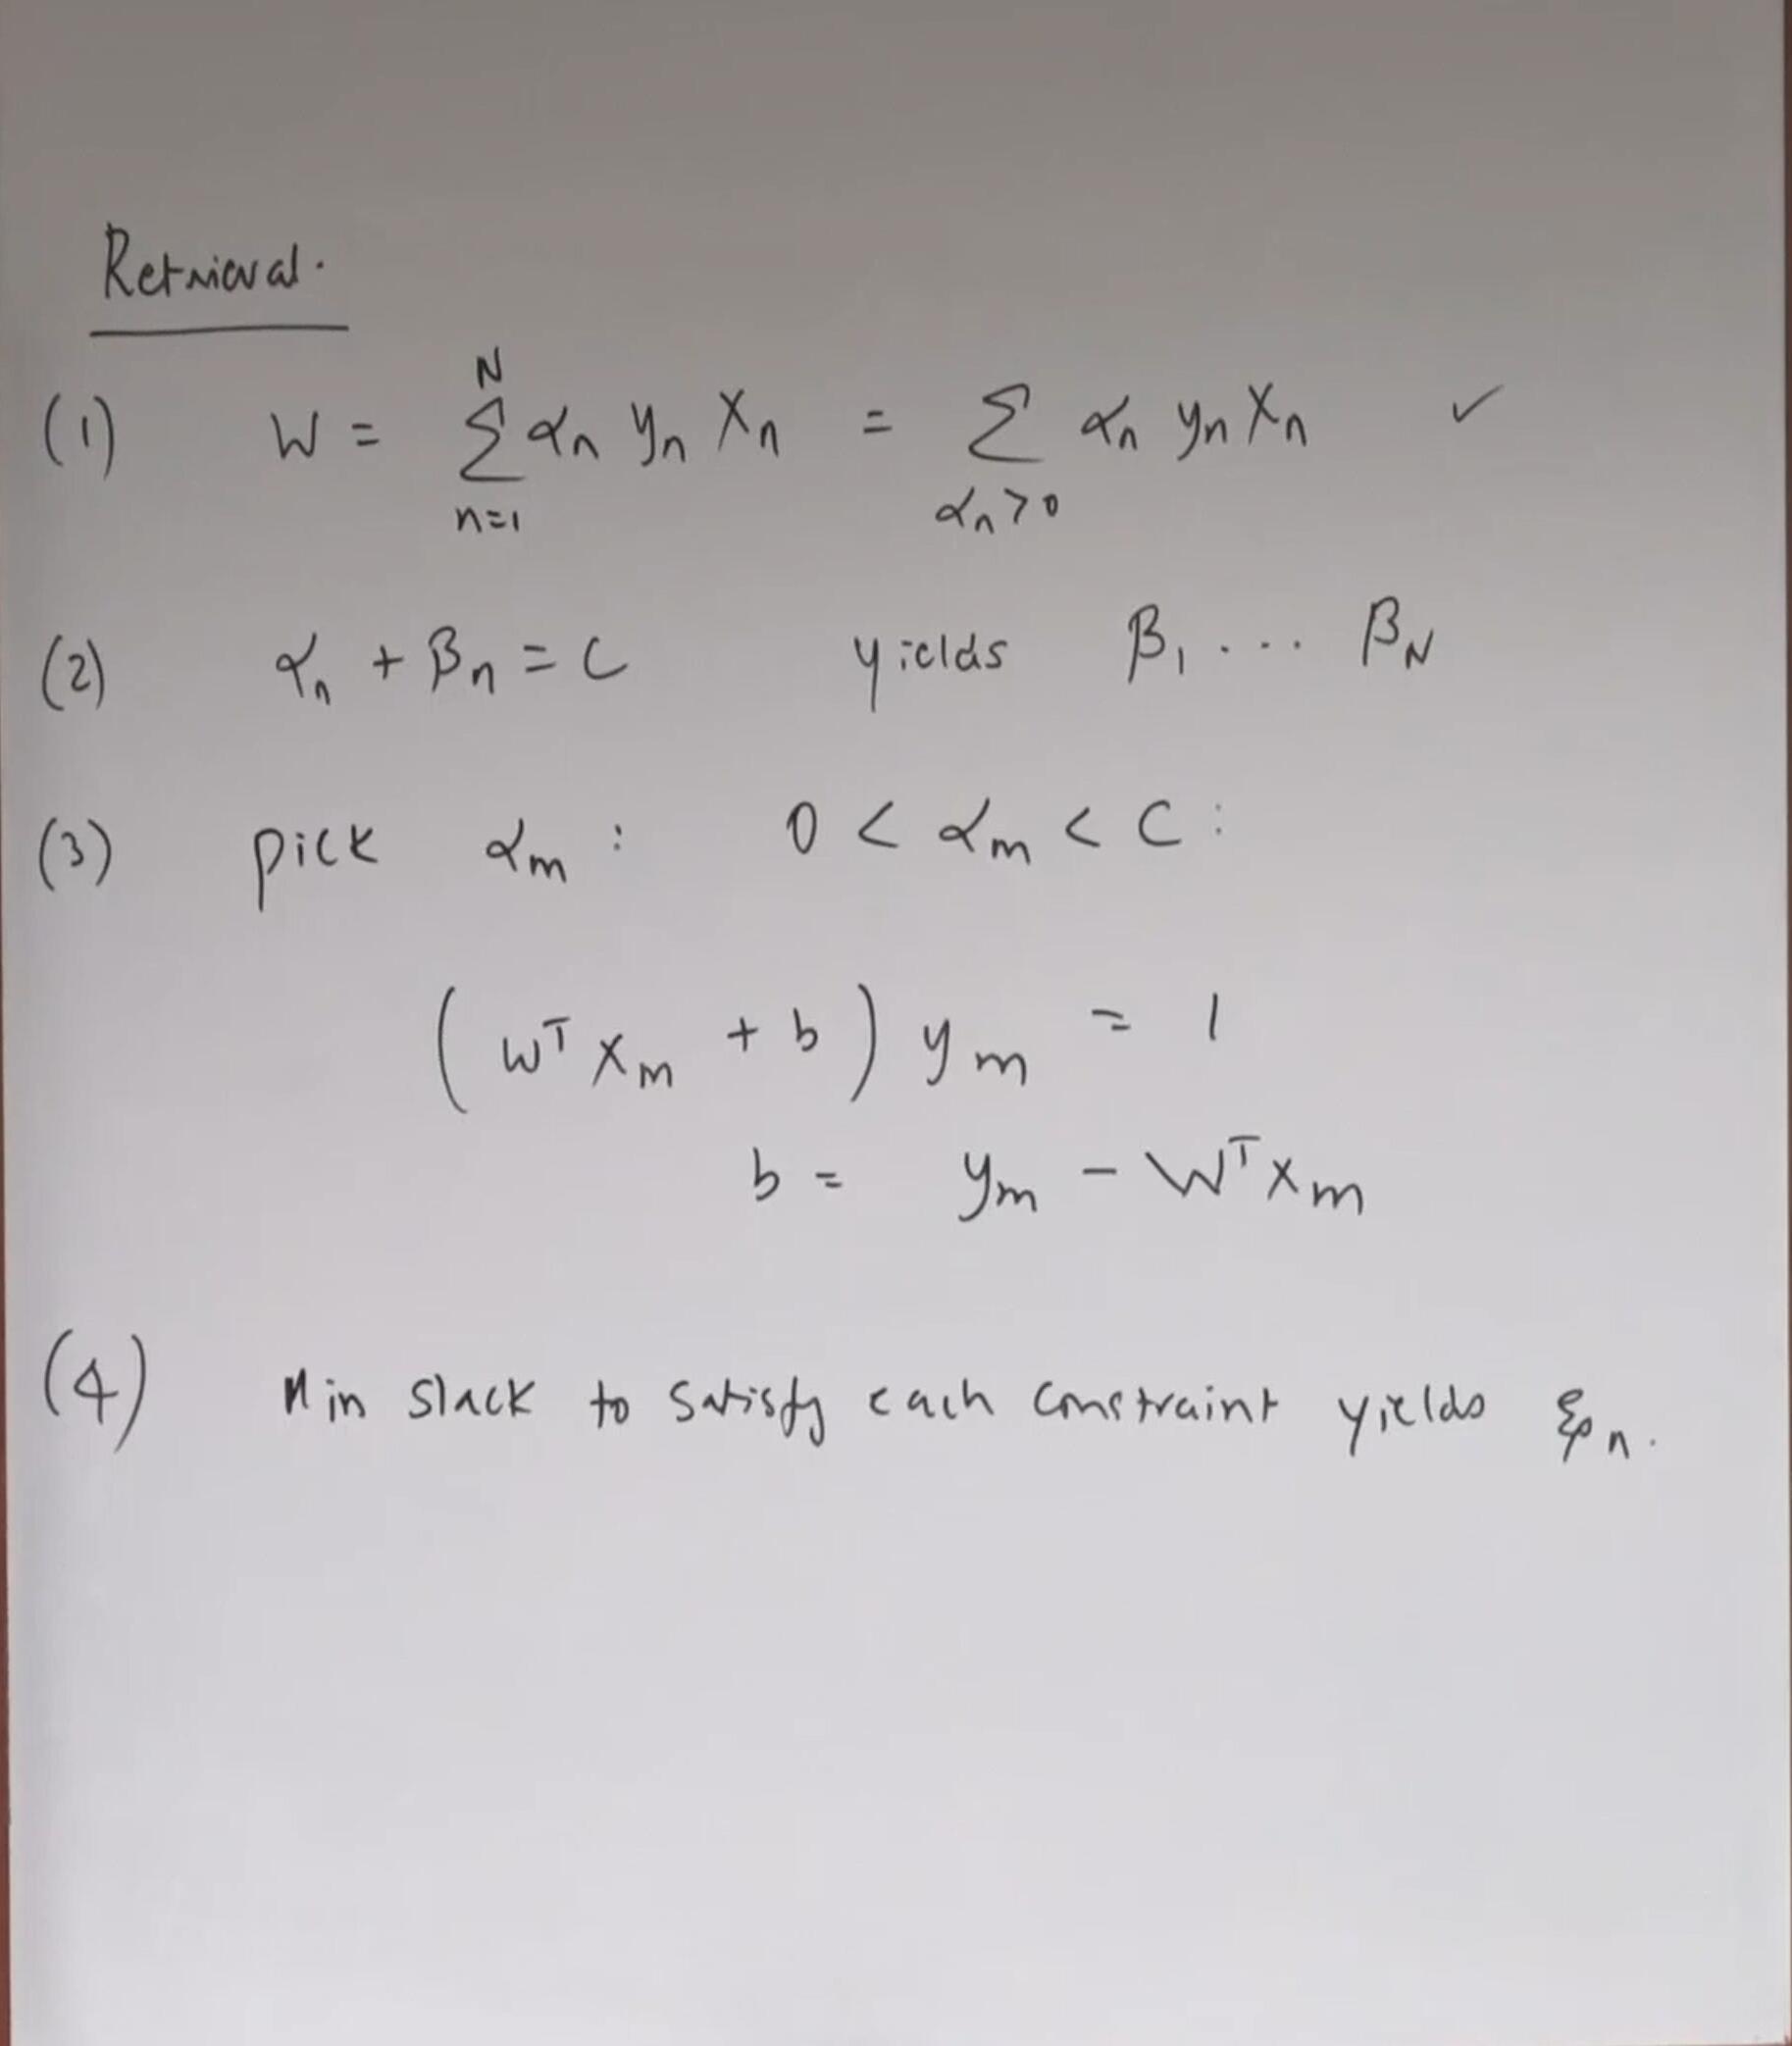 Retrieval.
(1) W = N Σ n=1 αn yn Xn = Σ αn>0 αn yn Xn ✓
(2) αn + βn = C yields β1 ... βN
(3) pick αm : 0 < αm < C :
(WᵀXm + b) ym = 1
b = ym - WᵀXm
(4) Min slack to satisfy each constraint yields ξn.